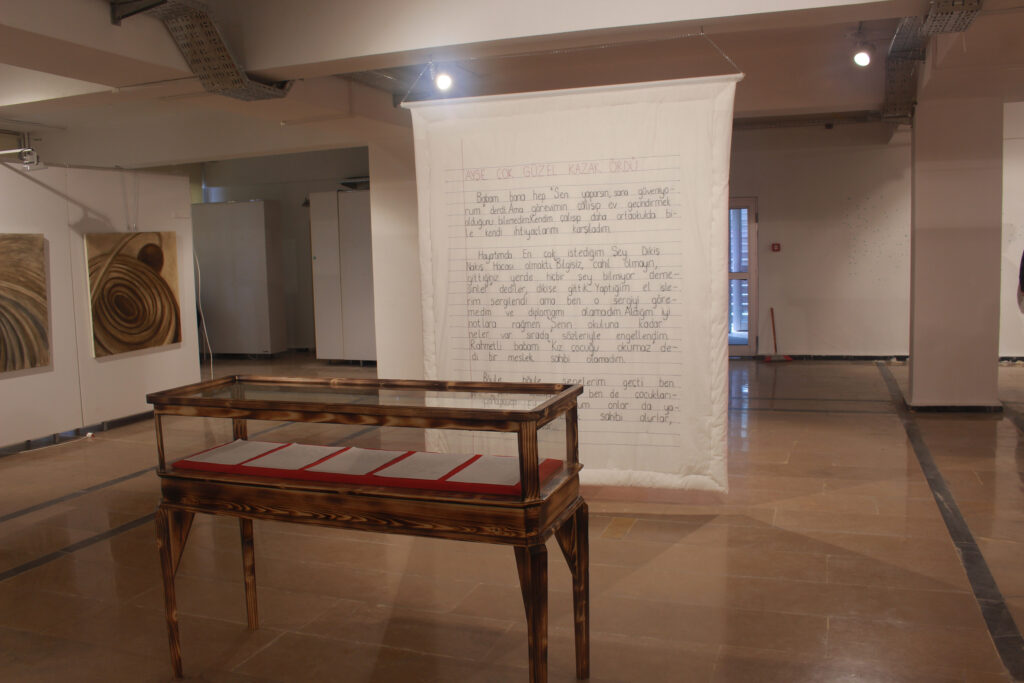 AYŞE ÇOK GÜZEL KAZAK ÖRDÜ
Babam bana hep "Sen yaparsın, sana güveniyo-
rum" derdi. Ama görevimin çalışıp ev geçindirmek
olduğunu bilemedim. Kendim çalışıp daha ortaokulda bi-
le kendi ihtiyaçlarımı karşıladım.
Hayatımda En çok istediğim Şey Dikiş
Nakış Hocası olmaktı. Bilgisiz, cahil olmayın,
gittiğiniz yerde hiçbir şey bilmiyor deme-
sinler" dediler, dikişe gittik. Yaptığım el işle-
rim sergilendi ama ben o sergiyi göre-
medim ve diplomamı alamadım. Aldığım iyi
notlara rağmen "Senin okuluna kadar
neler var sırada" sözleriyle engellendim.
Rahmetli babam "Kız çocuğu okumaz" de-
di bir meslek sahibi olamadım.
Böyle böyle senelerim geçti ben
ben de çocukları-
onlar da ya-
sahibi olurlar,